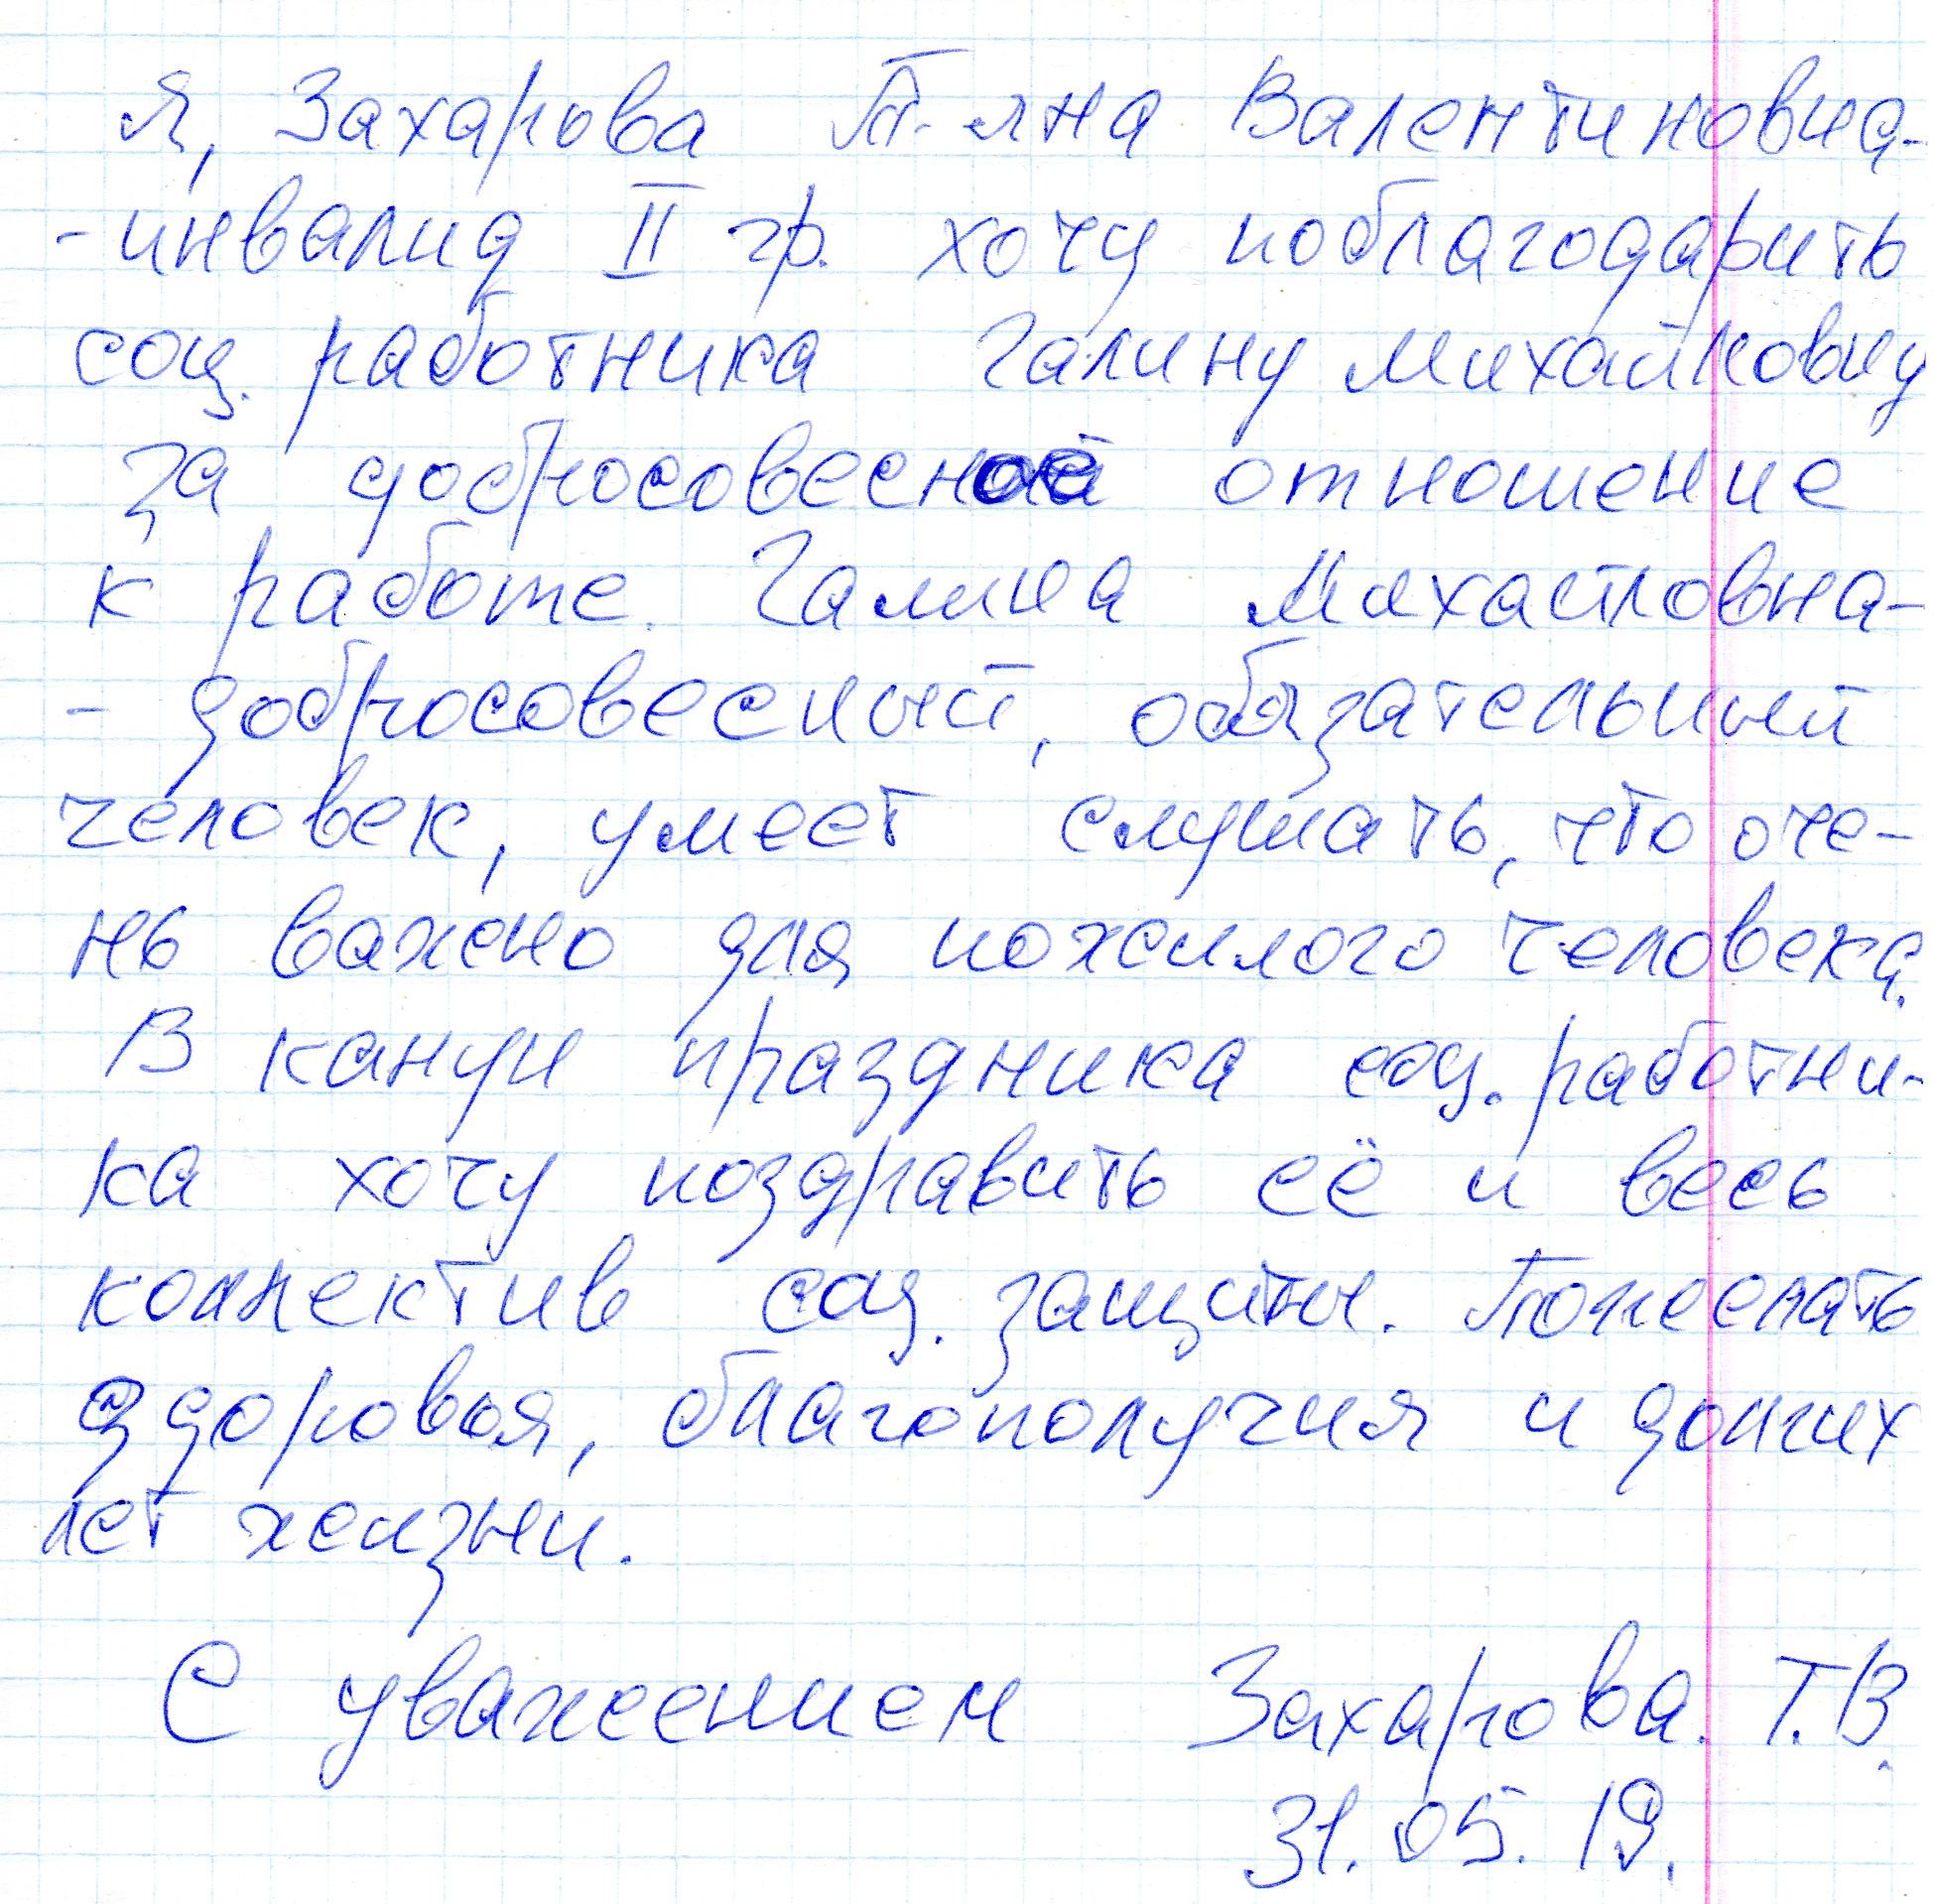 Я, Захарова Т-яна Валентиновна-
-инвалид II гр. хочу поблагодарить
соц. работника Галину Михайловну
за добросовесное отношение
к работе. Галина Михайловна-
- добросовесный, обязательный
человек, умеет слушать, что оче-
нь важено для пожилого человека.
В канун праздника соц. работни-
ка хочу поздравить её и весь
коллектив соц. защиты. Пожелать
здоровья, благополучия и долгих
лет жизни.
С уважением Захарова. Т.В.
31.05.19.